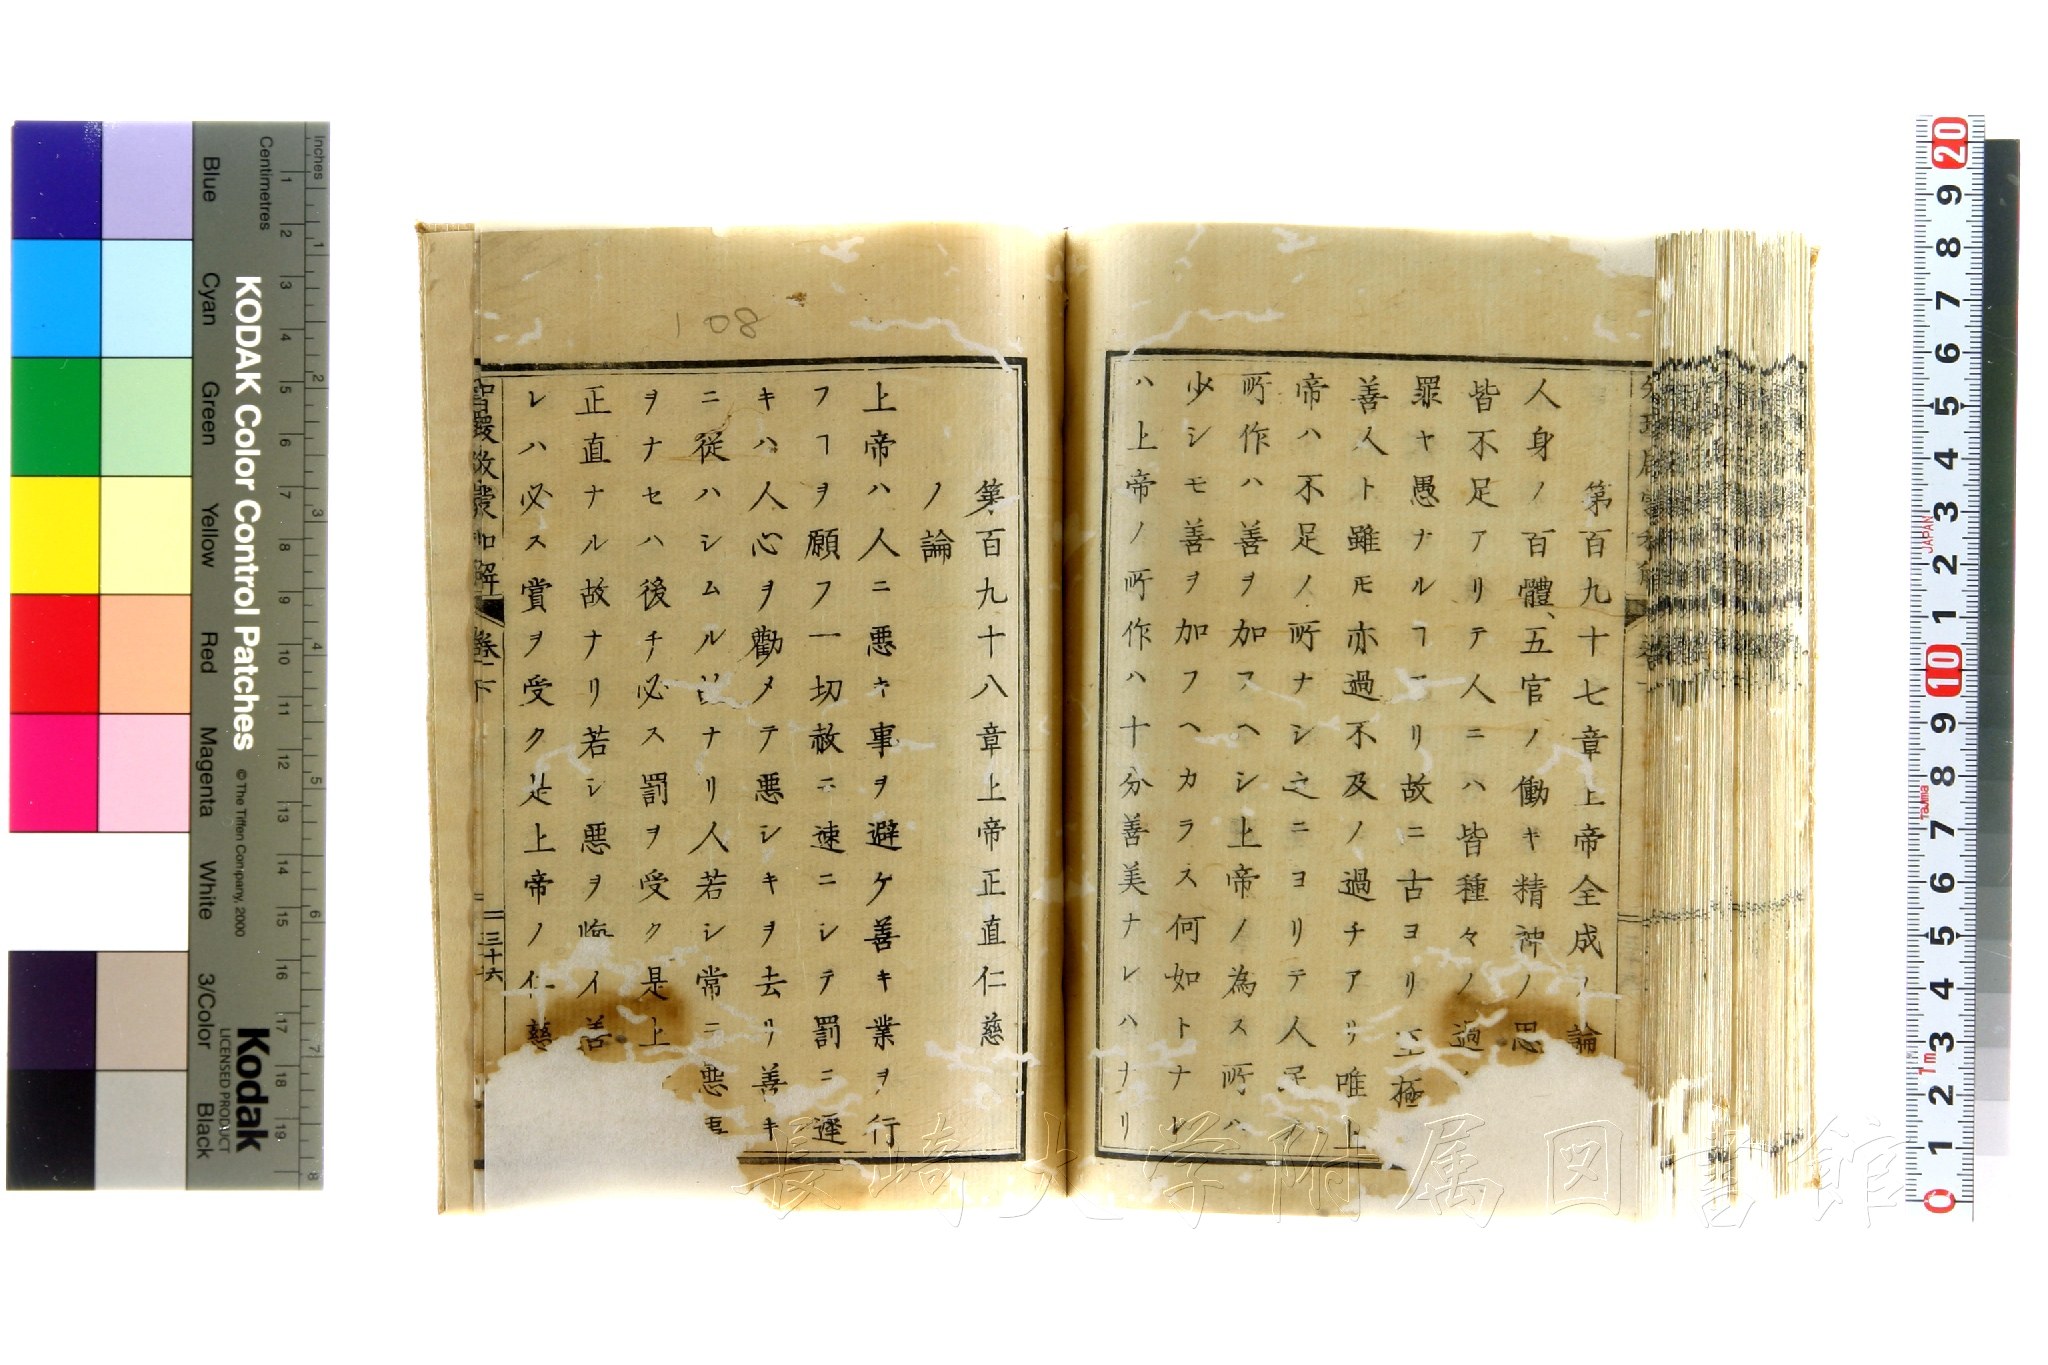 第百九十七章上帝全成ノ論
人身ノ百體、五官ノ働キ精神ノ思
皆不足アリテ人ニハ皆種々ノ過
罪ヤ愚ナルヿアリ故ニ古ヨリ至極
善人ト雖モ亦過不及ノ過チアリ唯上
帝ハ不足ノ所ナシ之ニヨリテ人ノ
所作ハ善ヲ加フヘシ上帝ノ為ス所ハ
少シモ善ヲ加フヘカラス何如トナレ
ハ上帝ノ所作ハ十分善美ナレハナリ
第百九十八章上帝正直仁慈
ノ論
上帝ハ人ニ悪キ事ヲ避ケ善キ業ヲ行
フヿヲ願フ一切赦ニ速ニシテ罰ニ遲
キハ人心ヲ勸メテ悪シキヲ去リ善キ
ニ従ハシムル ナリ人若シ常ニ悪事
ヲナセハ後チ必ス罰ヲ受ク是上
正直ナル故ナリ若シ悪ヲ悔イ善
レハ必ス賞ヲ受ク是上帝ノ仁慈
智環啟蒙和解 卷之下 三十六
108
長崎大学附属図書館
KODAK Color Control Patches
© The Tiffen Company, 2000
Kodak
LICENSED PRODUCT
Inches
Centimetres
Blue
Cyan
Green
Yellow
Red
Magenta
White
3/Color
Black
1 2 3 4 5 6 7 8 9 10 11 12 13 14 15 16 17 18 19
1 2 3 4 5 6 7 8
20 9 8 7 6 5 4 3 2 1 10 9 8 7 6 5 4 3 2 1 0
JAPAN
Tajima
1m